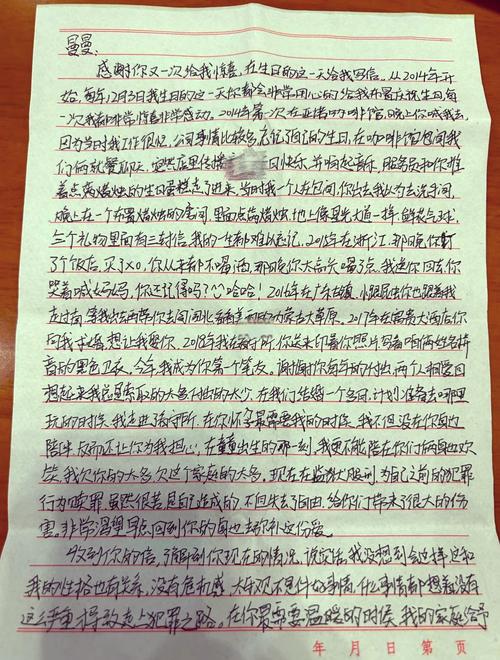 曼曼:
感谢你又一次给我惊喜,在生日的这一天给我写信。从2014年开
始,每年12月3日我生日的这一天你都会非常用心的给我布置庆祝生日,每
一次我都非常惊喜非常感动。2014年第一次在 咖啡馆,晚上你喊我去,
因为当时我工作很忙,公司事情比较多,忘记了自己的生日,在咖啡馆包间我
们俩就餐 ,突然店里传 日快乐,并响起音乐,服务员和你推
着点满蜡烛的生日蛋糕走了进来,当时我一个人在包间,你出去我以为去洗手间,
晚上在一个布置蜡烛的房间,里面点满蜡烛,地上像星光大道一样,鲜花与气球,
三个礼物里面有三封信,我的一生都难以忘记。2015年在浙江,那晚你订
了个饭店,买了XO,你从来都不喝酒,那晚你大高兴喝多了,我送你回去,你
哭着喊妈妈,你还记得吗?^^哈哈!2016年在广东 ,小跟屁虫你也跟着我
走过南, 等我 去 带你去 河北 内蒙古大草原。2017年在 大酒店你
向我求婚,想让我娶你,2018年我在看守所,你送来印着你照片,写着咱俩姓名拼
音的黑色卫衣,今年我成为你第一个笔友,谢谢你每年的付出,两个人相爱回
想起来我总是索取的太多付出的太少,在我们结婚一个多月,计划准备去哪里
玩的时候,我走进了看守所,在你怀孕最需要我的时候,我不但没在你身边
陪伴,反而还让你为我担心,在童童出生的那一刻,我更不能陪在你们俩身边欢
笑,我欠你的太多,欠这个家庭的太多。现在在监狱服刑,为自己之前的犯罪
行为赎罪,虽然很苦是自己造成的,不但失去了自由,给你们带来了很大的伤
害。非常渴望早点回到你的身边去弥补这份爱。
收到你的信,了解到你现在的情况,说实话,我没想到会这样,这和
我的性格也有关系,没有危机感,太乐观不是件好事情,什么事情都想着没有
这么严重,导致走上犯罪之路。在你最需要温暖的时候,我的家庭给予
年 月 日 第 页